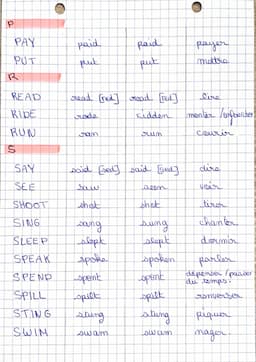 P
PAY paid paid payer
PUT put put mettre
R
READ read [red] read [red] lire
RIDE rode ridden monter /enfourcher
RUN ran run courir
S
SAY said [sed] said [sed] dire
SEE saw seen voir
SHOOT shot shot tirer
SING sang sung chanter
SLEEP slept slept dormir
SPEAK spoke spoken parler
SPEND spent spent dépenser /passer
du temps.
SPILL spilt spilt renverser
STING stung stung piquer
SWIM swam swam nager.